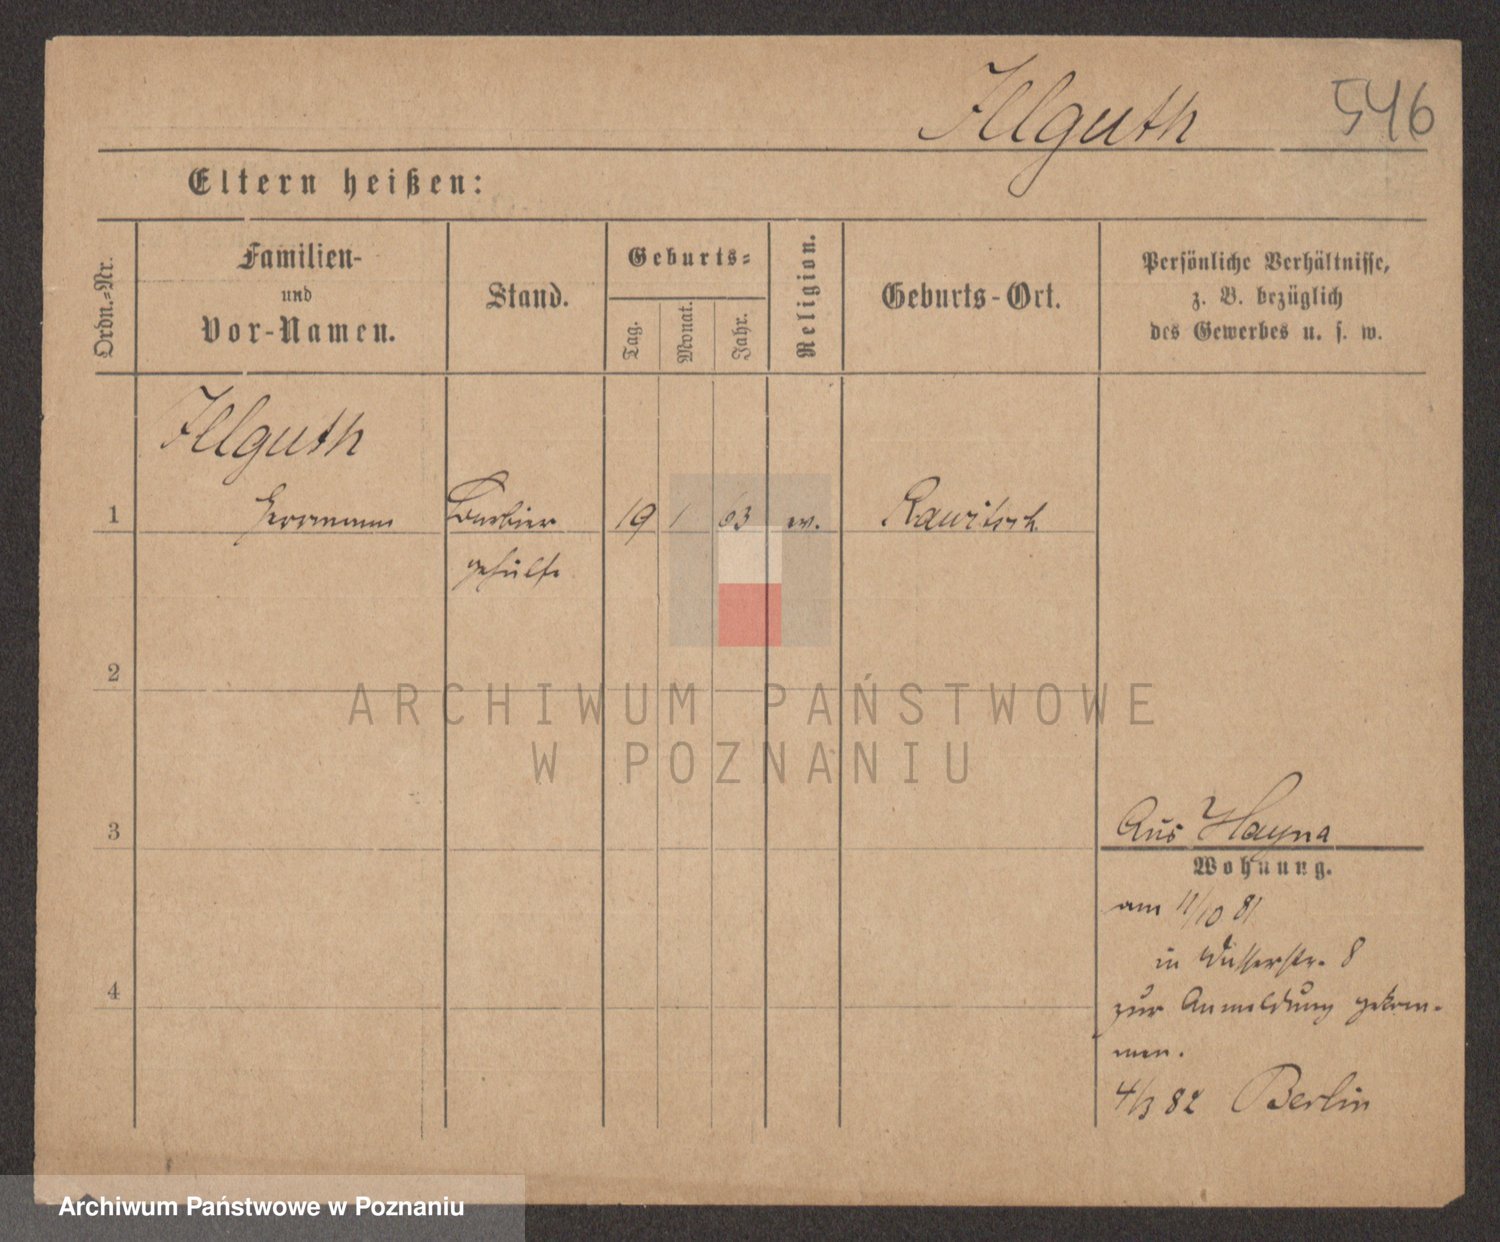 Illguth 546
Eltern heißen:
Ordn.=Nr.
Familien-
und
Vor-Namen.
Stand.
Geburts=
Tag.
Monat.
Jahr.
Religion.
Geburts-Ort.
Persönliche Verhältnisse,
z. B. bezüglich
des Gewerbes u. s. w.
Illguth
1 Herrmann Barbier 19 1 63 ev. Rawitsch
gehülfe
2
3
4
Aus Hayna
Wohnung.
am 11/10 81
in Wasserstr. 8
zur Anmeldung gekom-
men.
4/3 82 Berlin
ARCHIWUM PAŃSTWOWE
W POZNANIU
Archiwum Państwowe w Poznaniu